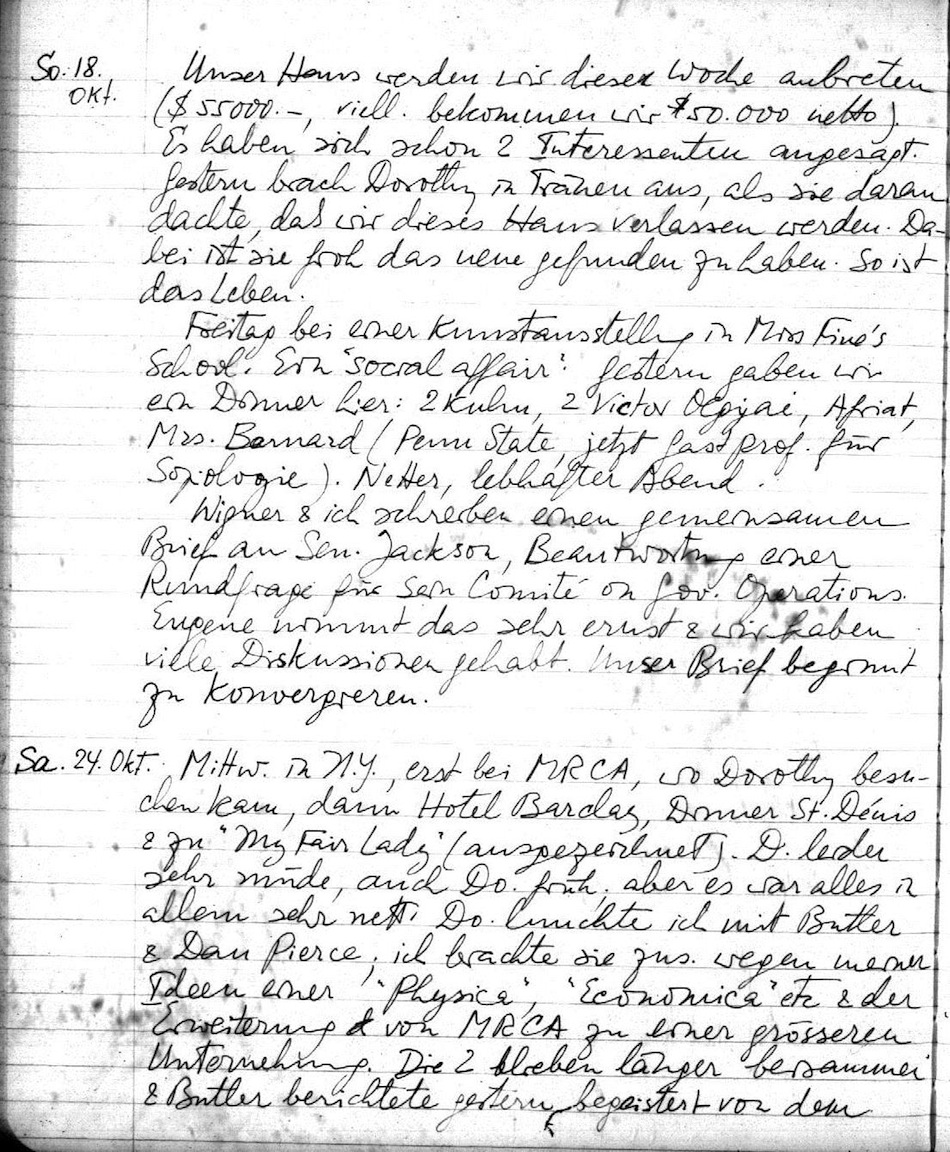 So. 18. Okt. Unser Haus werden wir diese Woche anbieten
($55000.-, viell. bekommen wir $50.000 netto).
Es haben sich schon 2 Interessenten angesagt.
Gestern brach Dorothy in Tränen aus, als sie daran
dachte, daß wir dieses Haus verlassen werden. Da-
bei ist sie froh das neue gefunden zu haben. So ist
das Leben.
Freitag bei einer Kunstausstellg in Miss Fine's
School. Ein "social affair". Gestern gaben wir
ein Dinner hier: 2 Kuhn, 2 Victor, Afriat,
Mrs. Bernard (Penn State, jetzt Gastprof. für
Soziologie). Netter, lebhafter Abend.
Wigner & ich schreiben einen gemeinsamen
Brief an Sen. Jackson, Beantwortung einer
Rundfrage für sein Comité on Gov. Operations.
Eugene nimmt das sehr ernst & wir haben
viele Diskussionen gehabt. Unser Brief beginnt
zu konvergieren.
Sa. 24. Okt. Mittw. in N.Y., erst bei MRCA, wo Dorothy besu-
chen kam, dann Hotel Barclay, Dinner St. Dénis
& zu "My Fair Lady" (ausgezeichnet). D. leider
sehr müde, auch Do. früh, aber es war alles in
allem sehr nett. Do. lunchte ich mit Butler
& Dan Pierce, ich brachte sie zus. wegen meiner
Ideen einer "Physica", "Economica" etc & der
Erweiterung von MRCA zu einer grösseren
Unternehmg. Die 2 blieben länger beisammen
& Butler berichtete gestern begeistert von dem